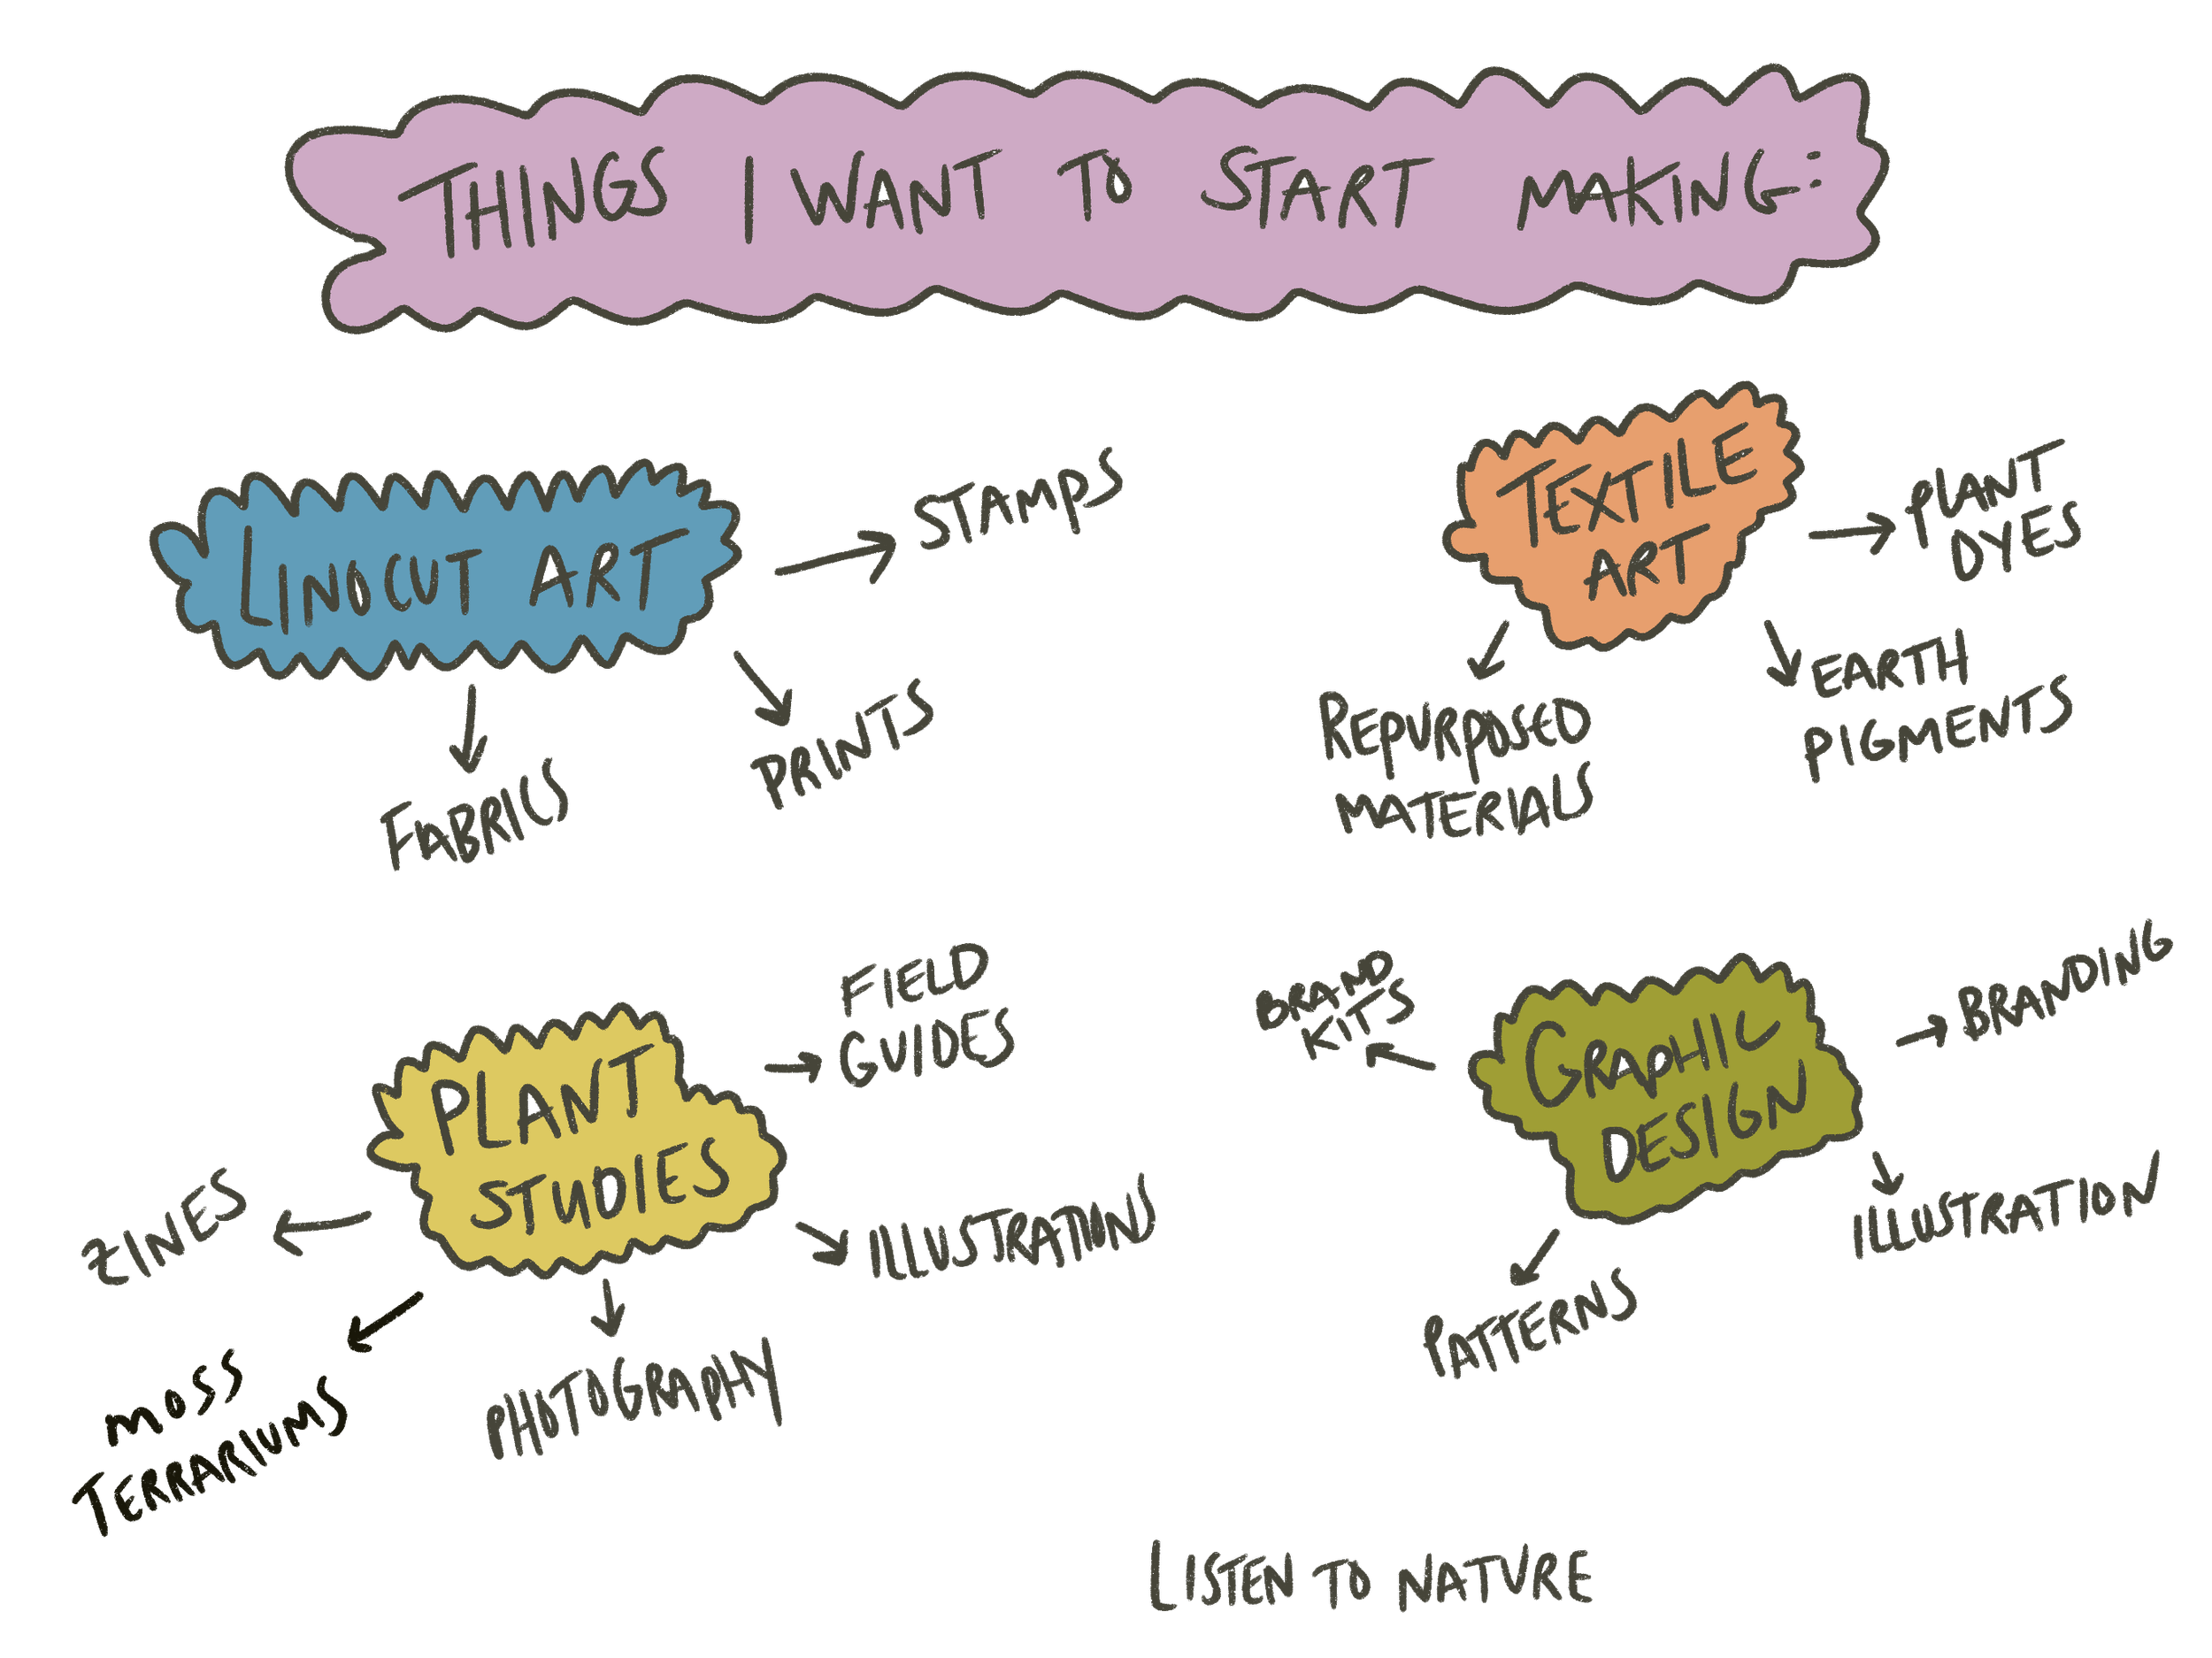 THINGS I WANT TO START MAKING:
LINOCUT ART
STAMPS
PRINTS
FABRICS
TEXTILE
ART
PLANT
DYES
EARTH
PIGMENTS
REPURPOSED
MATERIALS
PLANT
STUDIES
FIELD
GUIDES
ILLUSTRATIONS
PHOTOGRAPHY
ZINES
MOSS
TERRARIUMS
GRAPHIC
DESIGN
BRAND
KITS
BRANDING
ILLUSTRATION
PATTERNS
LISTEN TO NATURE